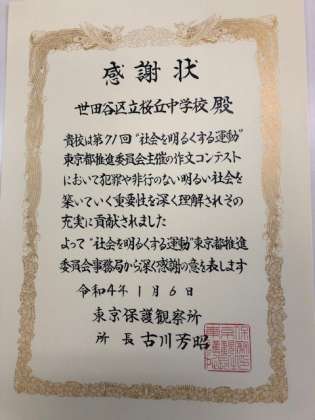 感謝状
世田谷区立桜丘中学校 殿
貴校は第71回“社会を明るくする運動”
東京都推進委員会主催の作文コンテスト
において犯罪や非行のない明るい社会を
築いていく重要性を深く理解されその
充実に貢献されました
よって“社会を明るくする運動”東京都推進
委員会事務局から深く感謝の意を表します
令和4年1月6日
東京保護観察所
所長 古川芳昭